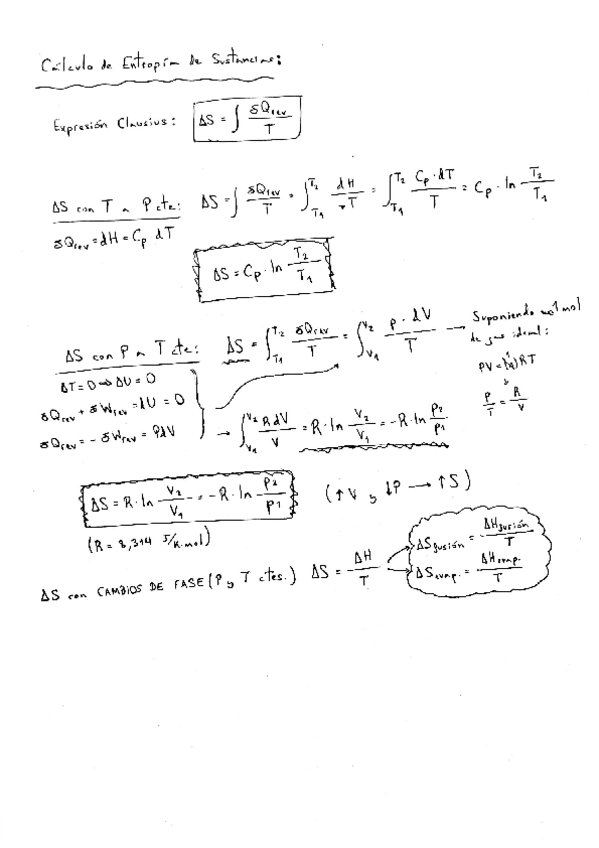 Cálculo de Entropía de Sustancias:
Expresión Clausius: ΔS = ∫ δQrev / T
ΔS con T a P cte: ΔS = ∫ δQrev / T = ∫T1^T2 dH / T = ∫T1^T2 Cp·dT / T = Cp · ln T2 / T1
δQrev = dH = Cp dT
ΔS = Cp · ln T2 / T1
ΔS con P a T cte: ΔS = ∫T1^T2 δQrev / T = ∫V1^V2 P·dV / T → Suponiendo 1 mol
de gas ideal:
ΔT = 0 ⇒ ΔU = 0
PV = (n) RT
δQrev + δWrev = dU = 0
P / T = R / V
δQrev = - δWrev = PdV → ∫V1^V2 R dV / V = R · ln V2 / V1 = - R · ln P2 / P1
ΔS = R · ln V2 / V1 = - R · ln P2 / P1 (↑V y ↓P → ↑S)
(R = 8,314 J/K·mol)
ΔS con CAMBIOS DE FASE (P y T ctes.) ΔS = ΔH / T
ΔSfusión = ΔHfusión / T
ΔSvap. = ΔHvap. / T